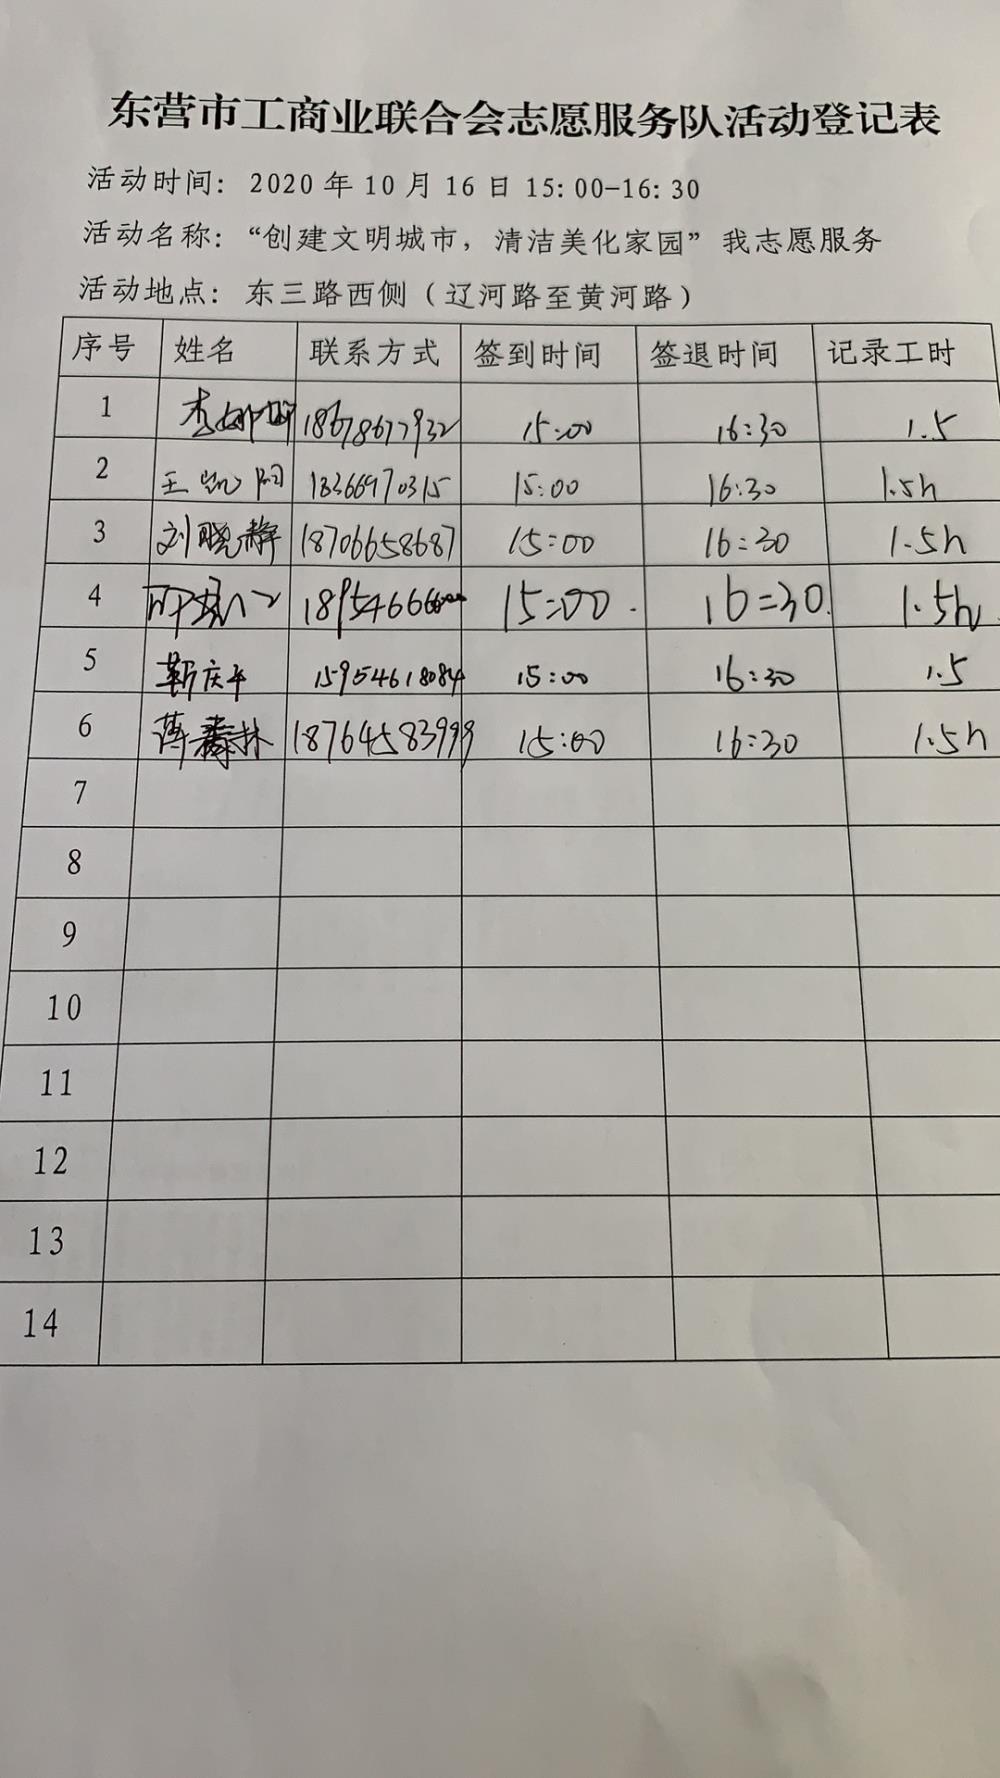 东营市工商业联合会志愿服务队活动登记表
活动时间: 2020 年 10 月 16 日 15:00-16:30
活动名称:“创建文明城市，清洁美化家园” 我志愿服务
活动地点: 东三路西侧（辽河路至黄河路）
序号 姓名 联系方式 签到时间 签退时间 记录工时
1 李 18678677932 15:00 16:30 1.5
2 王凯 18366970315 15:00 16:30 1.5h
3 刘晓静 18706658687 15:00 16:30 1.5h
4 15:00 16:30 1.5h
5 靳庆平 15954618084 15:00 16:30 1.5
6 林 18764583999 15:00 16:30 1.5h
7
8
9
10
11
12
13
14